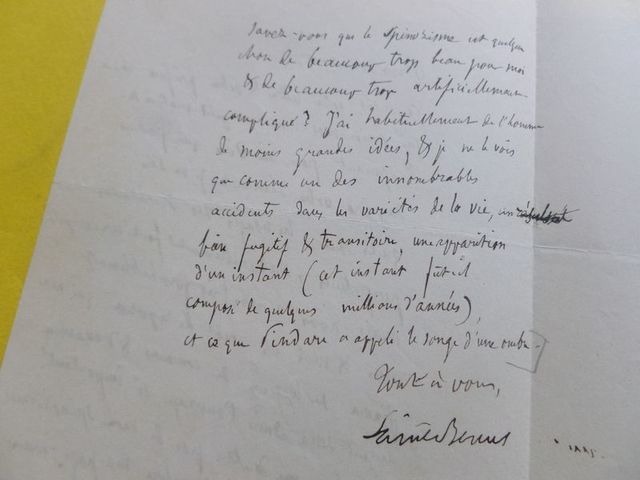 Savez-vous que le Spinozisme est quelque
chose de beaucoup trop beau pour moi
& de beaucoup trop artificiellement
compliqué? J'ai habituellement de l'homme
de moins grandes idées, & je ne le vois
que comme un des innombrables
accidents dans les variétés de la vie, un
fugitif & transitoire, une apparition
d'un instant (cet instant fut-il
composé de quelques millions d'années),
et ce que Pindare a appelé le songe d'une ombre
Tout à vous,
Sainte-Beuve